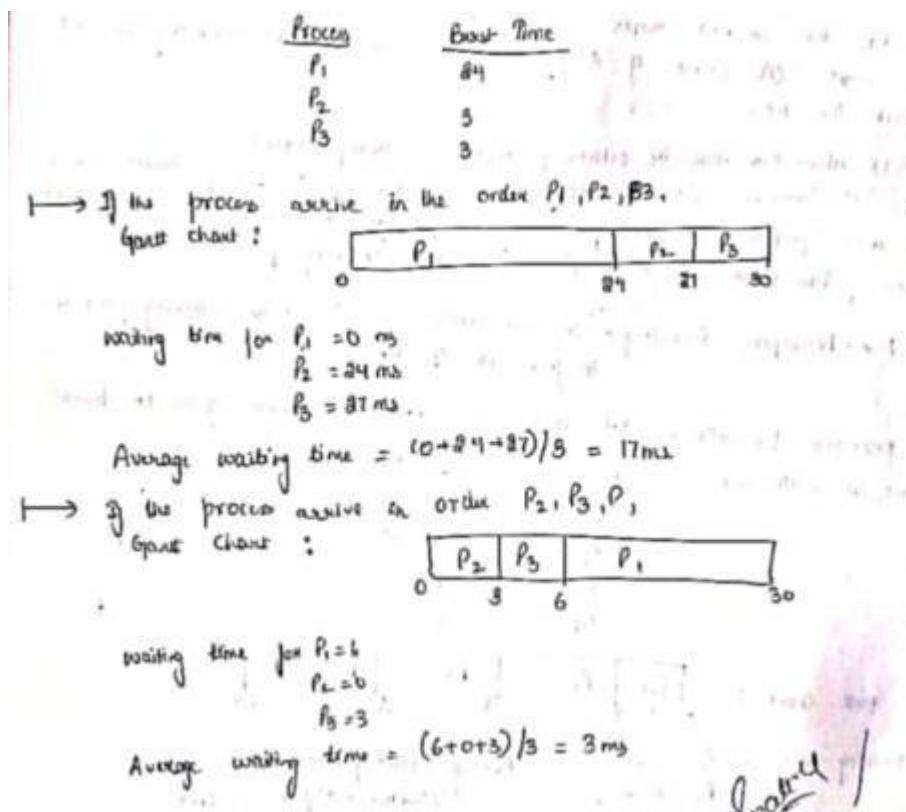 Process Burst Time
P1 24
P2 3
P3 3
If the process arrive in the order P1, P2, P3.
Gantt chart :
P1 P2 P3
0 24 27 30
waiting time for P1 = 0 ms
P2 = 24 ms
P3 = 27 ms.
Average waiting time = (0+24+27)/3 = 17ms
If the process arrive in order P2, P3, P1
Gantt chart :
P2 P3 P1
0 3 6 30
waiting time for P1 = 6
P2 = 0
P3 = 3
Average waiting time = (6+0+3)/3 = 3ms